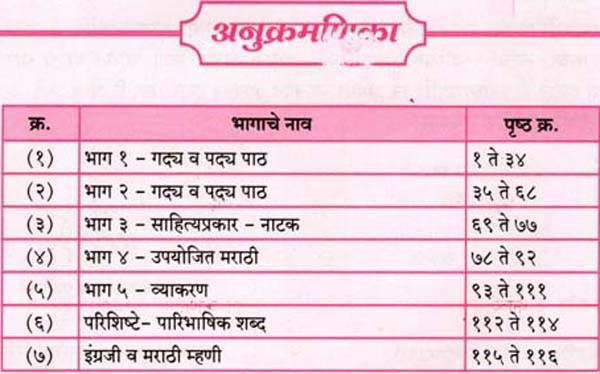 अनुक्रमणिका
क्र. भागाचे नाव पृष्ठ क्र.
(१) भाग १ – गद्य व पद्य पाठ १ ते ३४
(२) भाग २ – गद्य व पद्य पाठ ३५ ते ६८
(३) भाग ३ – साहित्यप्रकार – नाटक ६९ ते ७७
(४) भाग ४ – उपयोजित मराठी ७८ ते ९२
(५) भाग ५ – व्याकरण ९३ ते १११
(६) परिशिष्टे– पारिभाषिक शब्द ११२ ते ११४
(७) इंग्रजी व मराठी म्हणी ११५ ते ११६